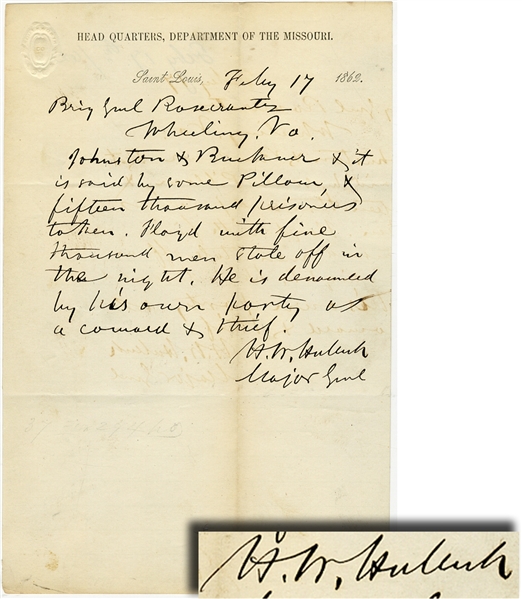 HEAD QUARTERS, DEPARTMENT OF THE MISSOURI.
Saint Louis, Feby 17 1862.
Brig Genl Rosecrantz
Wheeling, Va.
Johnston & Buckner & it
is said by some Pillow, &
fifteen thousand prisoners
taken. Floyd with five
thousand men stole off in
the night. He is denounced
by his own party as
a coward & thief.
H. W. Halleck
Major Genl
H. W. Halleck